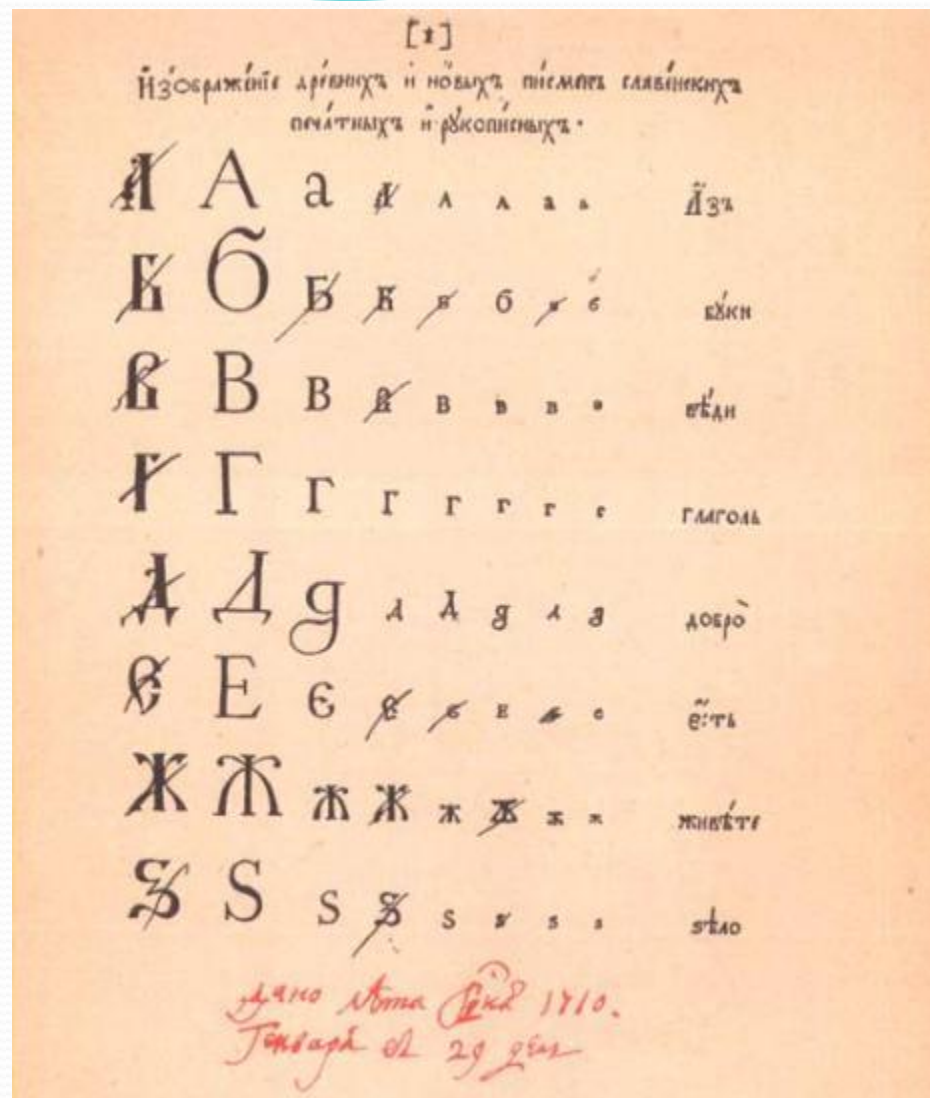 [1]
И҆зѡбраже́нїе дре́внихъ и҆ но́выхъ пи́сменъ славе́нскихъ
печа́тныхъ и҆ рꙋкопи́сныхъ.
А А а А А А а а А҆зъ
Б Б Б Б Б б б б бꙋ́ки
В В В В В В В В вѣ́ди
Г Г Г Г Г Г Г Г глаголь
Д Д д Д Д д Д д добро̀
Є Е є Є є Е є є є҆́сть
Ж Ж Ж Ж Ж Ж Ж Ж живѣ́те
Ѕ Ѕ Ѕ Ѕ Ѕ Ѕ Ѕ Ѕ ѕѣло
дано лѣта 1710.
Генваря 29 день